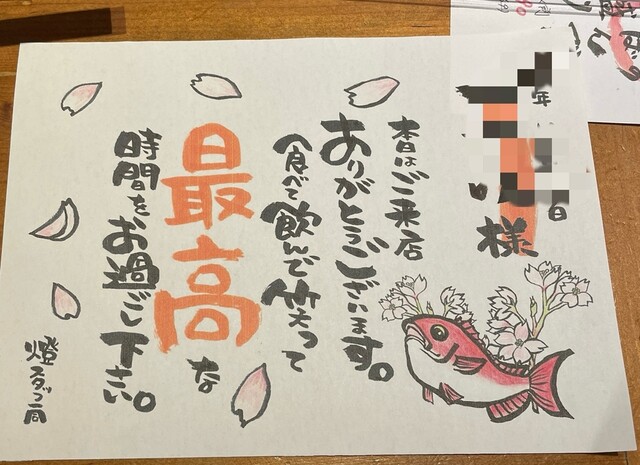 年
日
様
本日はご来店
ありがとうございます。
食べて飲んで笑って
最高な
時間をお過ごし下さい。
燈スタッフ一同